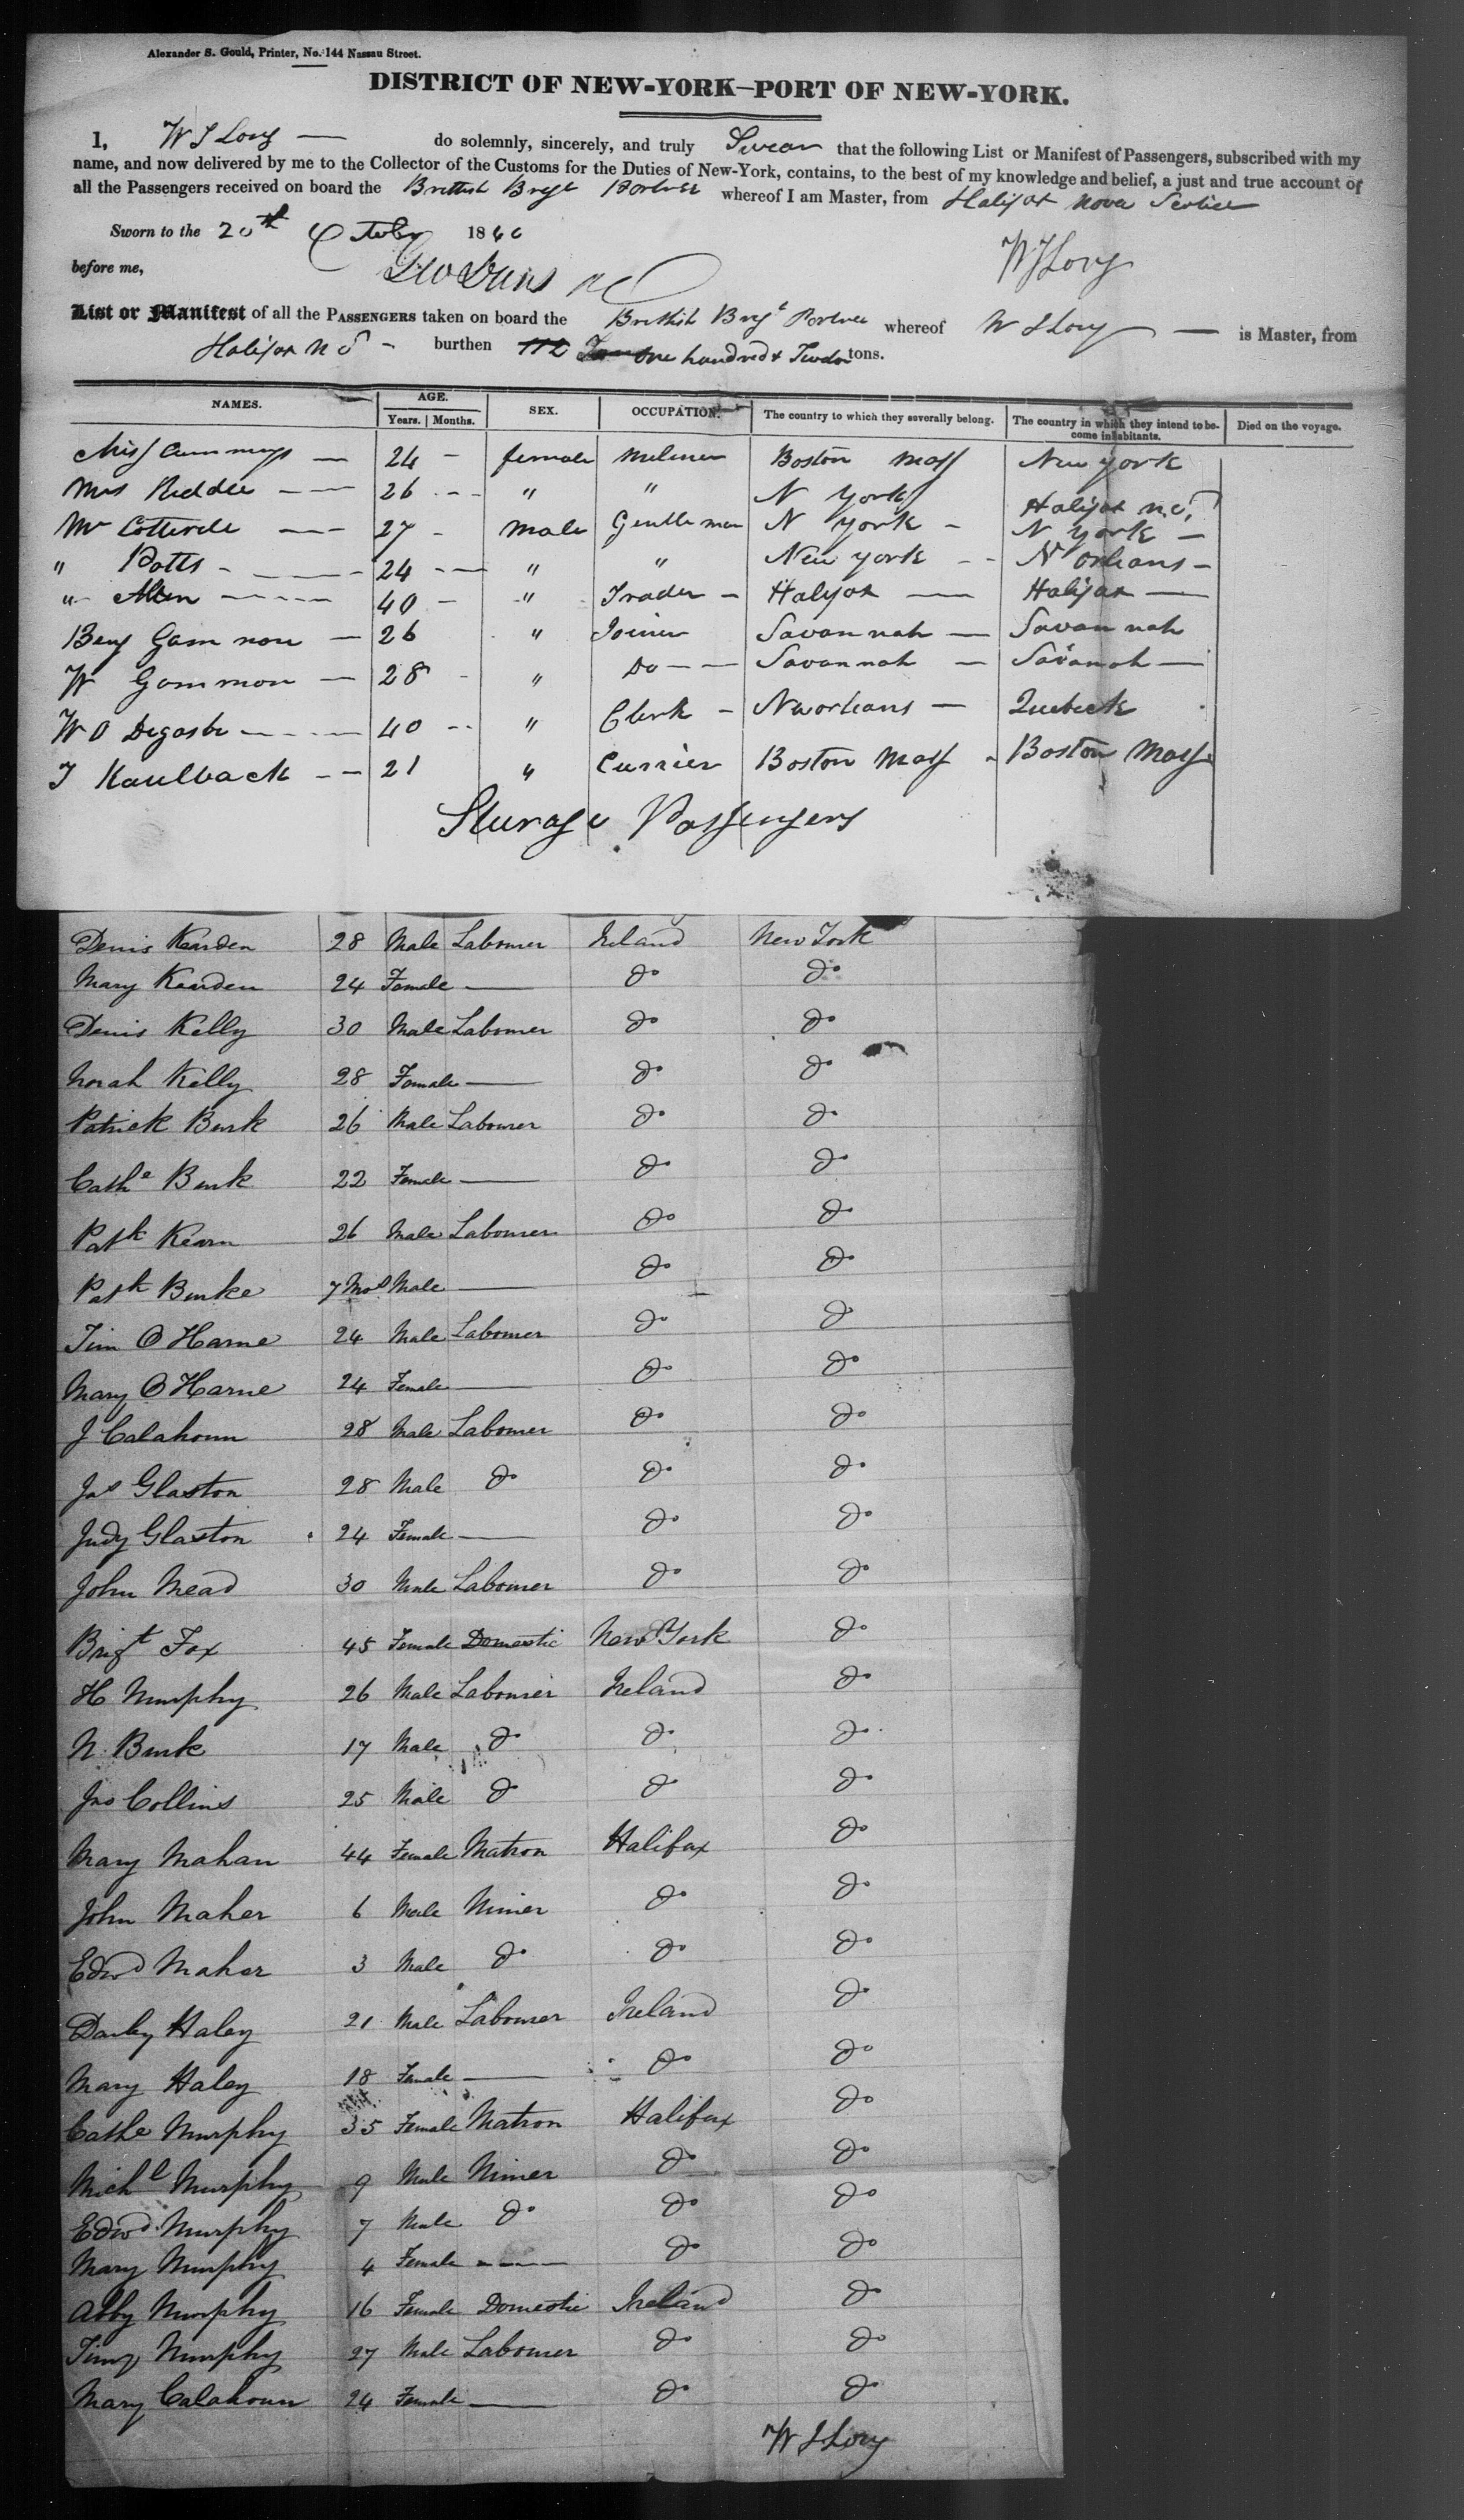 Alexander S. Gould, Printer, No. 144 Nassau Street.
DISTRICT OF NEW-YORK—PORT OF NEW-YORK.
I, W J Lory — do solemnly, sincerely, and truly Swear that the following List or Manifest of Passengers, subscribed with my
name, and now delivered by me to the Collector of the Customs for the Duties of New-York, contains, to the best of my knowledge and belief, a just and true account of
all the Passengers received on board the British Brigt whereof I am Master, from Halifax Nova Scotia
Sworn to the 20th October 1840
before me, W J Lory
List or Manifest of all the PASSENGERS taken on board the British Brigt whereof W J Lory — is Master, from
Halifax N S - burthen 112 one hundred & tons.
NAMES. AGE. Years. | Months. SEX. OCCUPATION. The country to which they severally belong. The country in which they intend to become inhabitants. Died on the voyage.
Miss Cummings — 24 - female Boston Mass New York
Mrs Riddle - — 26 - - - " " N York Halifax N S
Mr Cotterele - — 27 - male Gentleman N York - N York —
" Potts - - — - 24 - — " " New York - - N Orleans -
" Allen - - - - 40 - " Trader - Halifax — Halifax —
Benj Gammon — 26 " Joiner Savannah — Savannah
W Gammon — 28 - " Do - — Savannah — Savanah —
W O Degasbe - - - — 40 - - " Clerk - Neworleans — Quebeck
J Kaulback - — 21 " Currier Boston Mass - Boston Mass
Steurage Passengers
Denis Kearden 28 Male Labourer Ireland New York
Mary Kearden 24 Female — Do Do
Denis Kelly 30 Male Labourer Do Do
Norah Kelly 28 Female — Do Do
Patrick Burk 26 Male Labourer Do Do
Cathe Burk 22 Female — Do Do
Patk Kearn 26 Male Labourer Do Do
Patk Burke 7 Mos Male — Do Do
Tim O Harne 24 Male Labourer Do Do
Mary O Harne 24 Female — Do Do
J Calahoun 28 Male Labourer Do Do
Jas Glaston 28 Male Do Do Do
Judy Glaston 24 Female — Do Do
John Mead 30 Male Labourer Do Do
Brigt Fox 45 Female Domestic New York Do
H Murphy 26 Male Labourer Ireland Do
N. Burk 17 Male Do Do Do
Jno Collins 25 Male Do Do Do
Mary Mahan 44 Female Matron Halifax Do
John Maher 6 Male Nimer Do Do
Edwd Maher 3 Male Do Do Do
Darby Haley 21 Male Labourer Ireland Do
Mary Haley 18 Female — Do Do
Cathe Murphy 35 Female Matron Halifax Do
Michl Murphy 9 Male Nimer Do Do
Edwd. Murphy 7 Male Do Do Do
Mary Murphy 4 Female - - - Do Do
Abby Murphy 16 Female Domestic Ireland Do
Timy Murphy 27 Male Labourer Do Do
Mary Calahoun 24 Female — Do Do
W J Lory